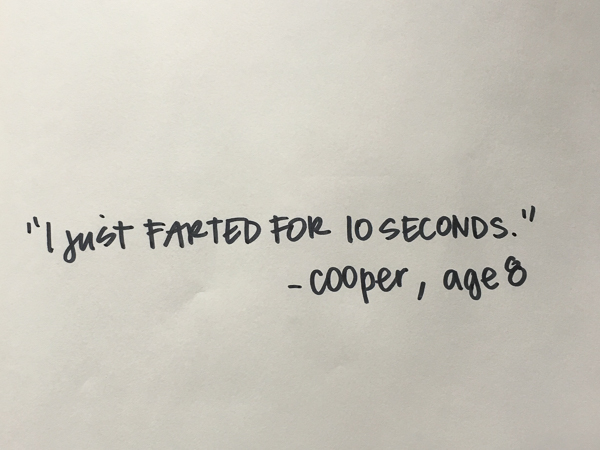 "I just FARTED FOR 10 SECONDS."
- cooper, age 8